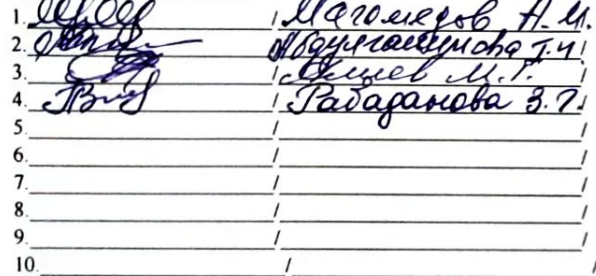 1. / Магомедов А.М.
2. / Абдулгамидова Т.Ч.
3. / М.Г.
4. / Рабаданова З.Г.
5. / /
6. / /
7. / /
8. / /
9. / /
10. / /